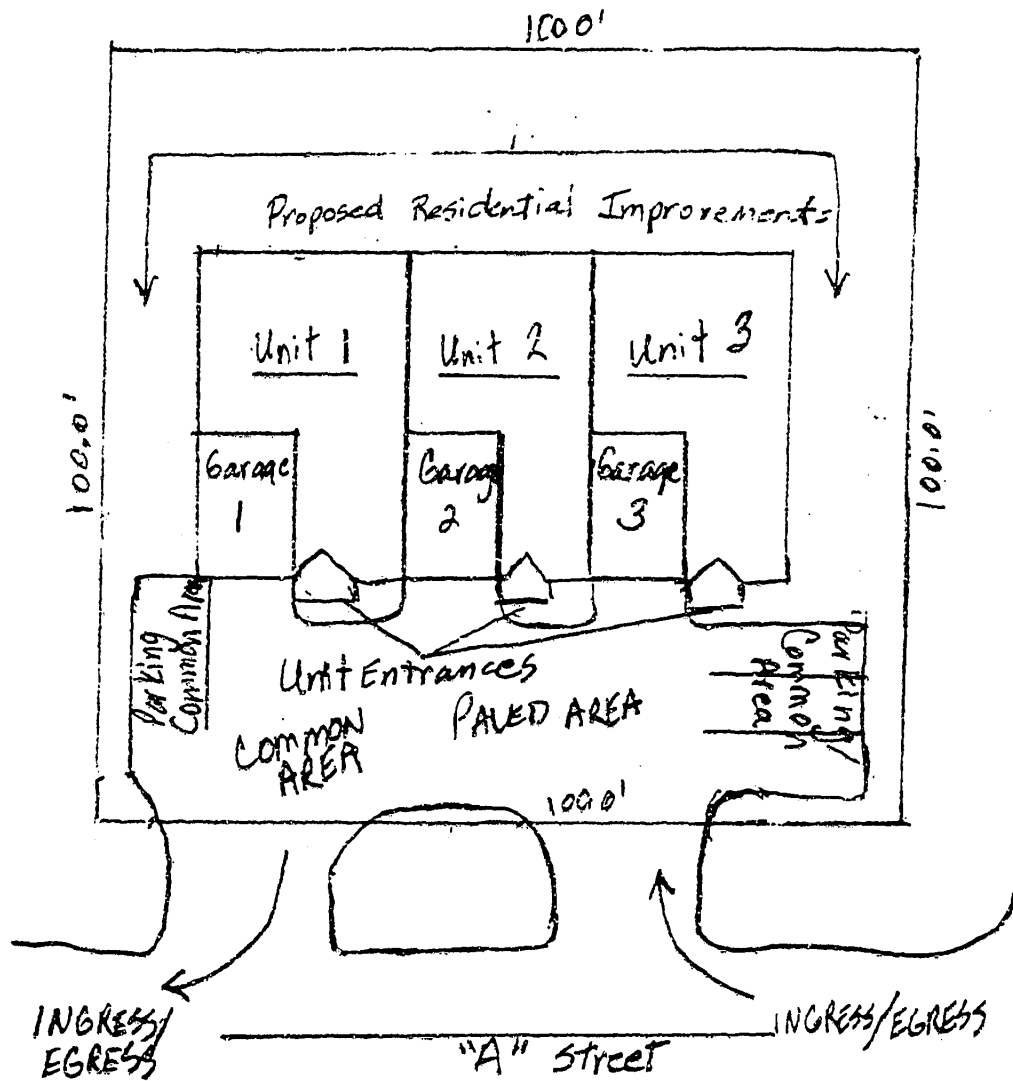 100.0'
Proposed Residential Improvements
Unit 1
Unit 2
Unit 3
100.0'
100.0'
Garage
1
Garage
2
Garage
3
Parking
Common Area
Unit Entrances
Parking/
Common
Area
COMMON
AREA
PAVED AREA
100.0'
INGRESS/
EGRESS
INGRESS/EGRESS
"A" Street